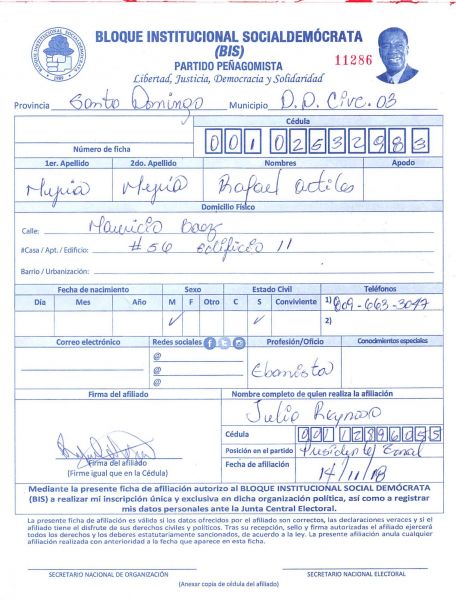 BLOQUE INSTITUCIONAL SOCIALDEMÓCRATA
(BIS)
PARTIDO PEÑAGOMISTA
11286
Libertad, Justicia, Democracia y Solidaridad
BLOQUE INSTITUCIONAL SOCIALDEMOCRATA
Provincia Santo Domingo Municipio D.D. Circ. 03
Cédula
Número de ficha 00102532983
1er. Apellido 2do. Apellido Nombres Apodo
Mejia Mejia Rafael
Domicilio Físico
Calle: Mauricio Baez
#Casa / Apt. / Edificio: #56 Edificio 11
Barrio / Urbanización:
Fecha de nacimiento Sexo Estado Civil Teléfonos
Día Mes Año M F Otro C S Conviviente 1) 809-663-3047
✓ ✓ 2)
Correo electrónico Redes sociales Profesión/Oficio Conodmientos especiales
@
@ Ebanista
@
Firma del afiliado Nombre completo de quien realiza la afiliación
Julio Reynoso
Cédula 00112896055
Posición en el partido Presidente Zonal
Firma del afiliado Fecha de afiliación 14/11/18
(Firme igual que en la Cédula)
Mediante la presente ficha de afiliación autorizo al BLOQUE INSTITUCIONAL SOCIAL DEMÓCRATA
(BIS) a realizar mi inscripción única y exclusiva en dicha organización política, así como a registrar
mis datos personales ante la Junta Central Electoral.
La presente ficha de afiliación es válida si los datos ofrecidos por el afiliado son correctos, las declaraciones veraces y si el
afiliado tiene el disfrute de sus derechos civiles y políticos. Tras su recepción, sello y firma autorizadas el afiliado ejercerá
todos los derechos y los deberes estatutariamente sancionados, de acuerdo a la ley. La presente afiliación anula cualquier
afiliación realizada con anterioridad a la fecha que aparece en esta ficha.
SECRETARIO NACIONAL DE ORGANIZACIÓN SECRETARIO NACIONAL ELECTORAL
(Anexar copia de cédula del afiliado)